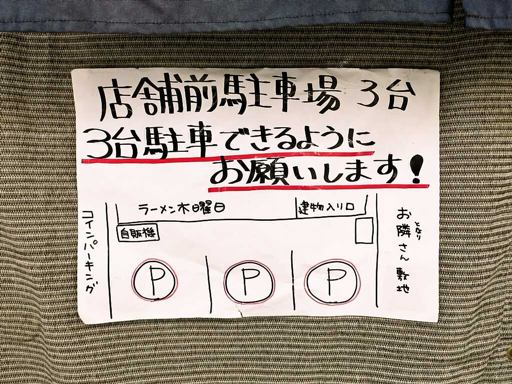 店舗前駐車場 3台
3台駐車できるように
お願いします!
ラーメン木曜日
建物入り口
自販機
コインパーキング
P
P
P
お隣さん敷地
となり